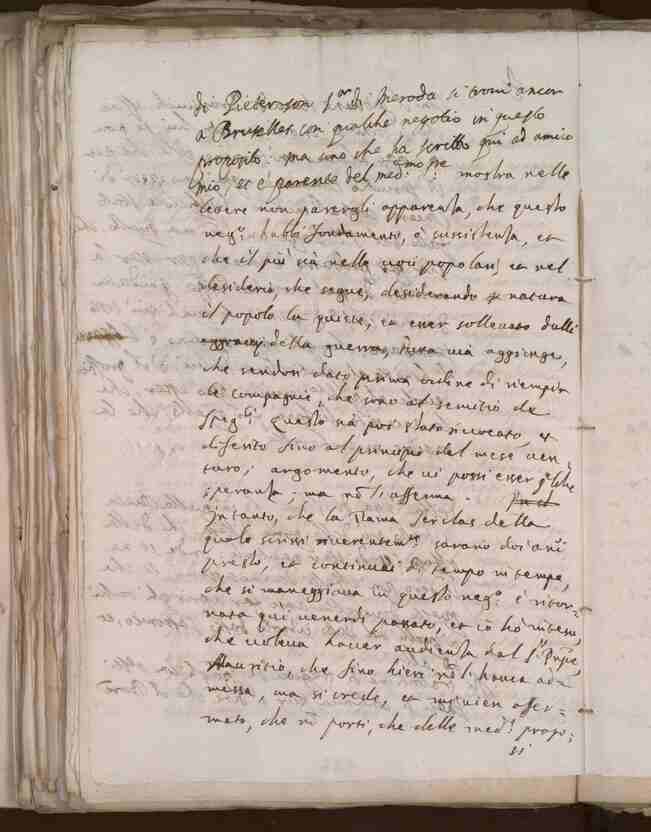 di Pieterson S.or di Meroda si trovi ancor
à Bruselles con qualche negotio in questo
proposito: ma uno che ha scritto qui ad amico
mio, et è parente del med.mo mostra nelle
lettere non parergli apparenza, che questo
neg.o habbi fondamento, ò sussistenza, et
che il più stà nelle voci popolari, et nel
desiderio, che segue, desiderando natura
il popolo la quiete, et esser sollevato dalli
aggravij della guerra, tutta via aggionge,
che sendosi dato prima ordine di riempir
le compagnie, che sono al servitio de
Spag.li questo sia poi stato rivocato, et
diferito sino al principio del mese ven=
turo; argomento, che vi possi esser q.lche
speranza; ma nõ s'afferma.
Intanto, che la Dama Serclas della
quale scrissi riverentem.te sarano doi anni
presto, et continuai di tempo in tempo,
che si maneggiava in questo neg.o è ritor=
nata qui venerdì passato, et io hò inteso,
che voleva haver audienza dal S.r Prñpe
Mauritio, che sino hieri nõ l'haveva
messa, ma si crede, et mi vien affer=
mato, che ni porti, che delle med.e propo=
si